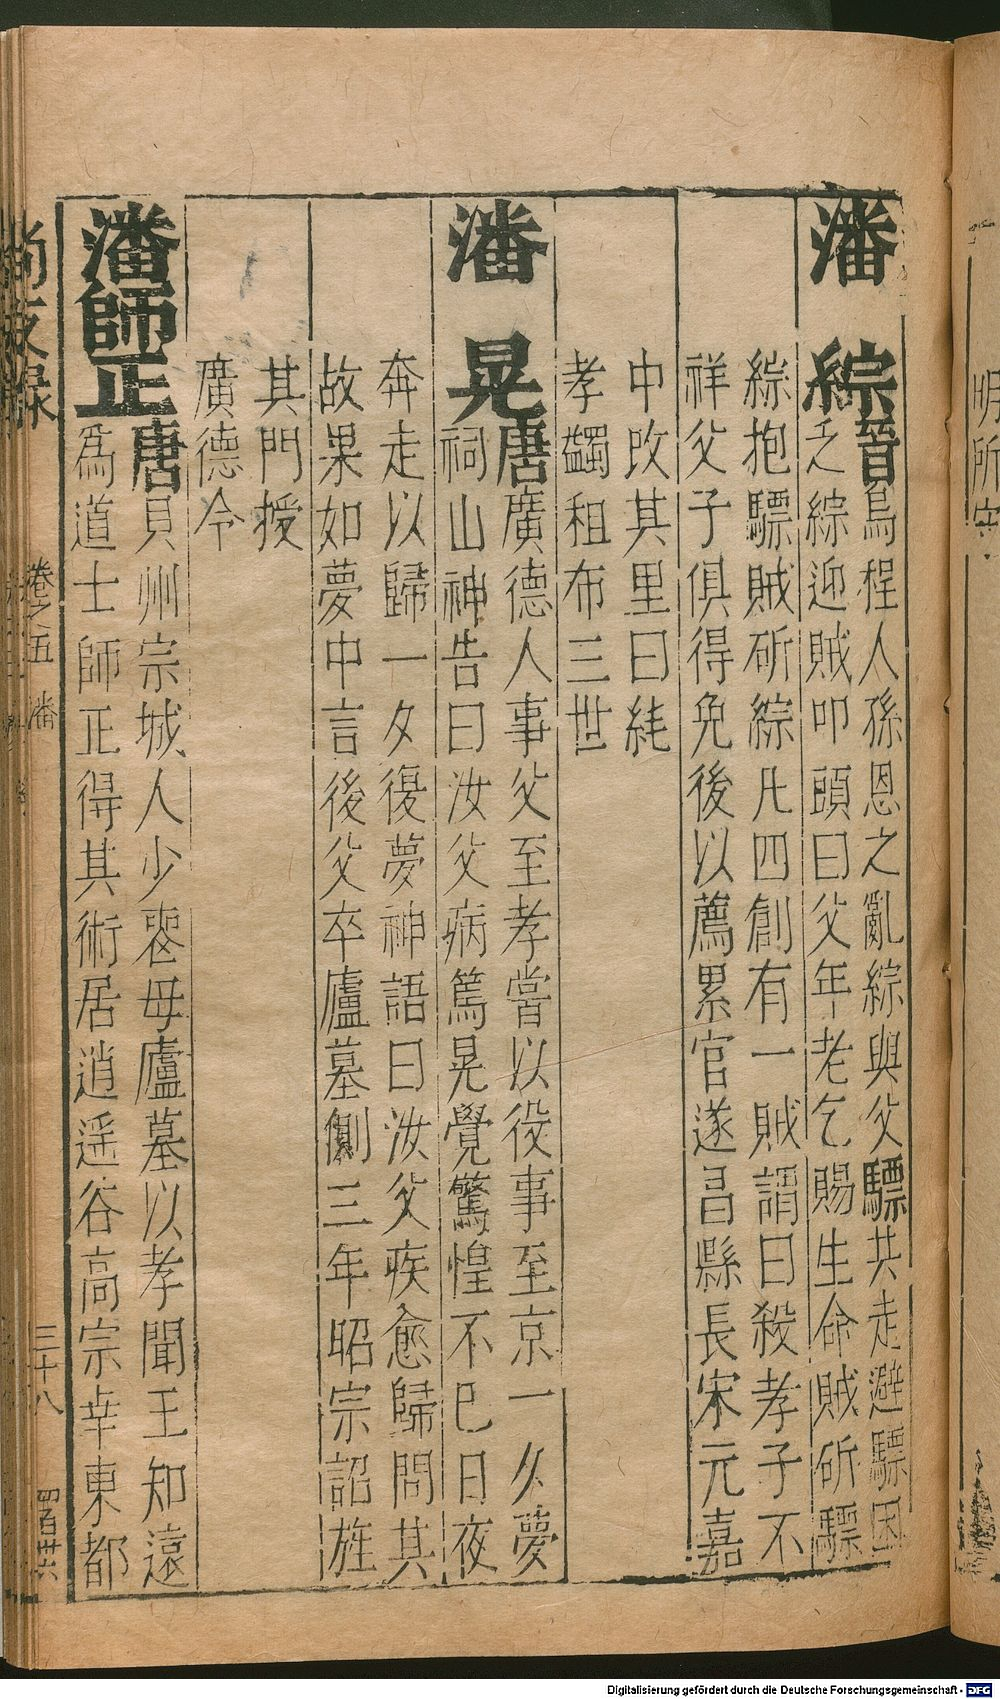 潘綜晉烏程人孫恩之亂綜與父驃共走避驃困
乏綜迎賊叩頭曰父年老乞賜生命賊斫驃
綜抱驃賊斫綜凡四創有一賊謂曰殺孝子不
祥父子俱得免後以薦累官遂昌縣長宋元嘉
中改其里曰純
孝蠲租布三世
潘晃唐廣德人事父至孝嘗以役事至京一夕夢
祠山神告曰汝父病篤晃覺驚惶不已日夜
奔走以歸一夕復夢神語曰汝父疾愈歸問其
故果如夢中言後父卒廬墓側三年昭宗詔旌
其門授
廣德令
潘師正唐貝州宗城人少喪母廬墓以孝聞王知遠
為道士師正得其術居逍遥谷高宗幸東都
尚友錄 卷之五 潘 三十八
明所
Digitalisierung gefördert durch die Deutsche Forschungsgemeinschaft - DFG